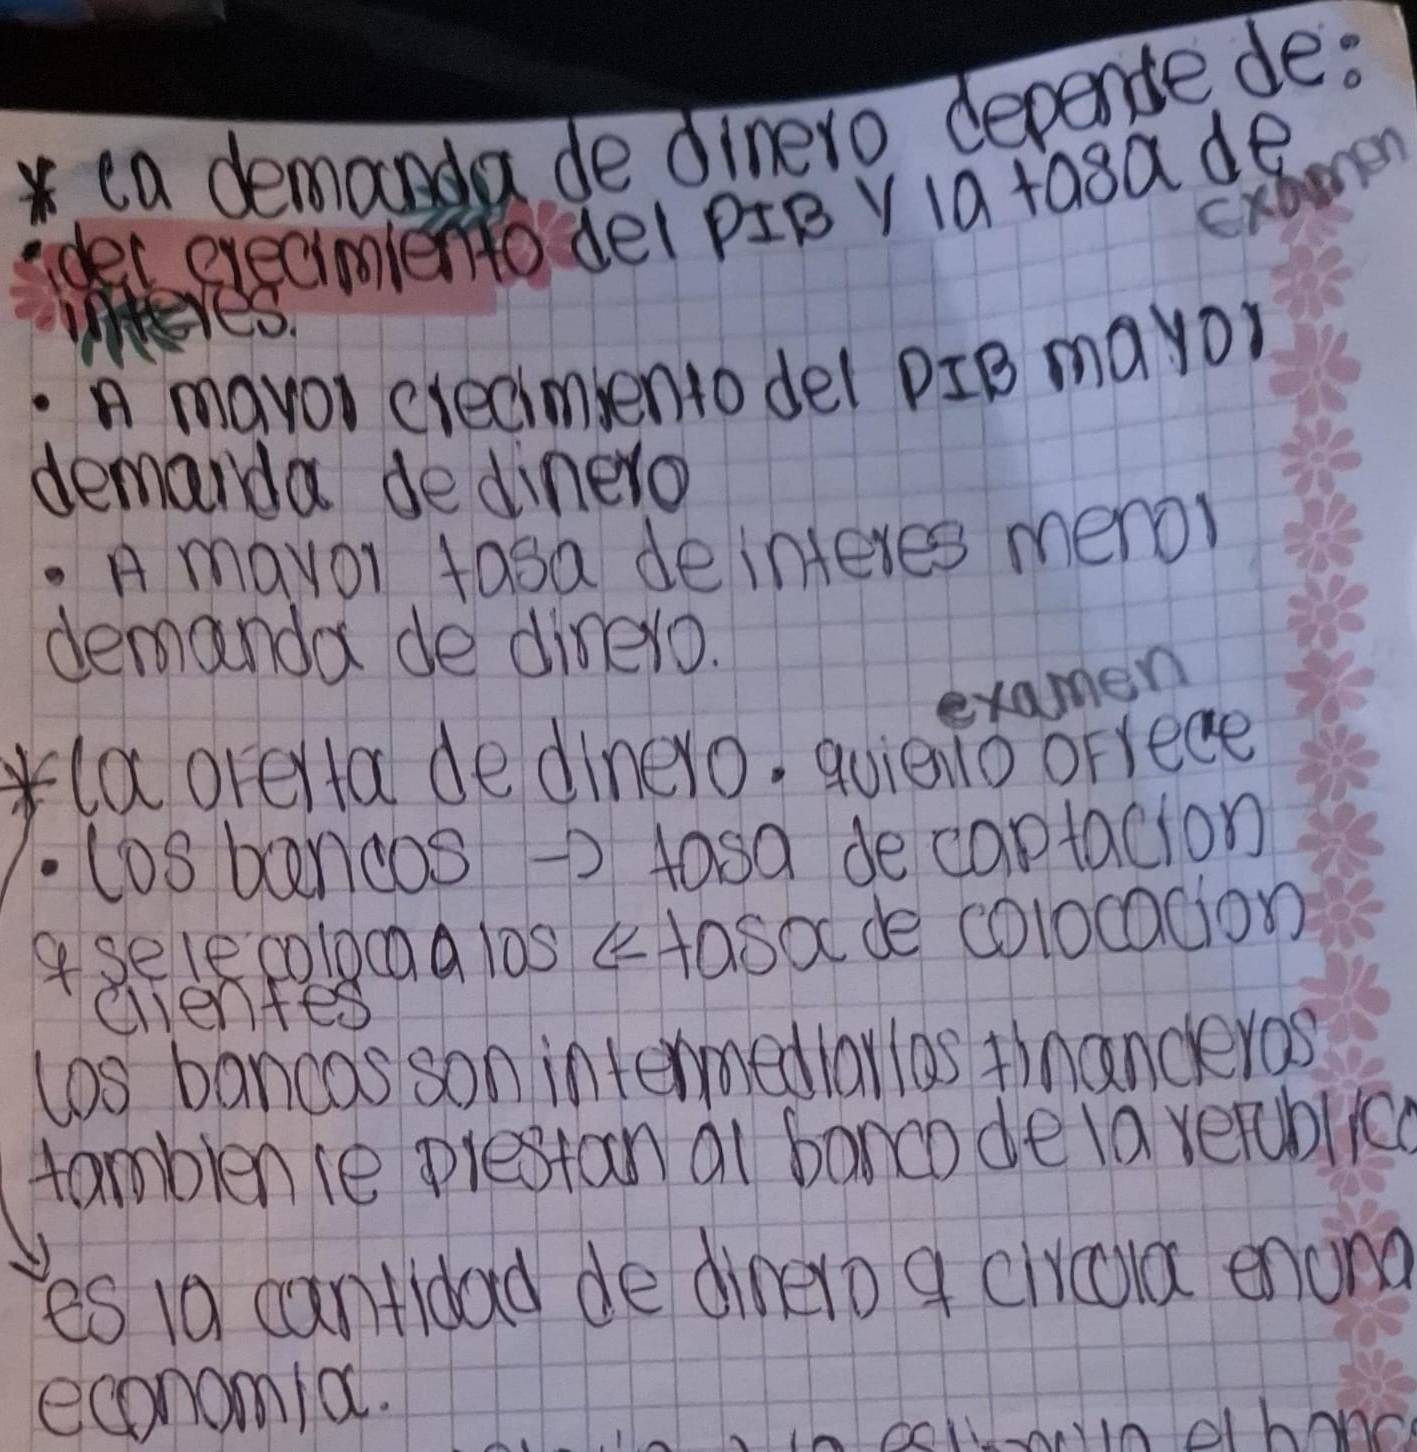 * la demanda de dinero depende de:
• del crecimiento del PIB y la tasa de
examen
interes.
• A mayor crecimiento del PIB mayor
demanda de dinero
• A mayor tasa de interes menor
demanda de dinero.
examen
* la oferta de dinero. quien lo ofrece
• los bancos → tasa de captacion
q se le coloca a los ← tasa de colocacion
clientes
los bancos son intermediarios financieros
tambien le prestan al banco de la republica
es la cantidad de dinero q circula en una
economia.